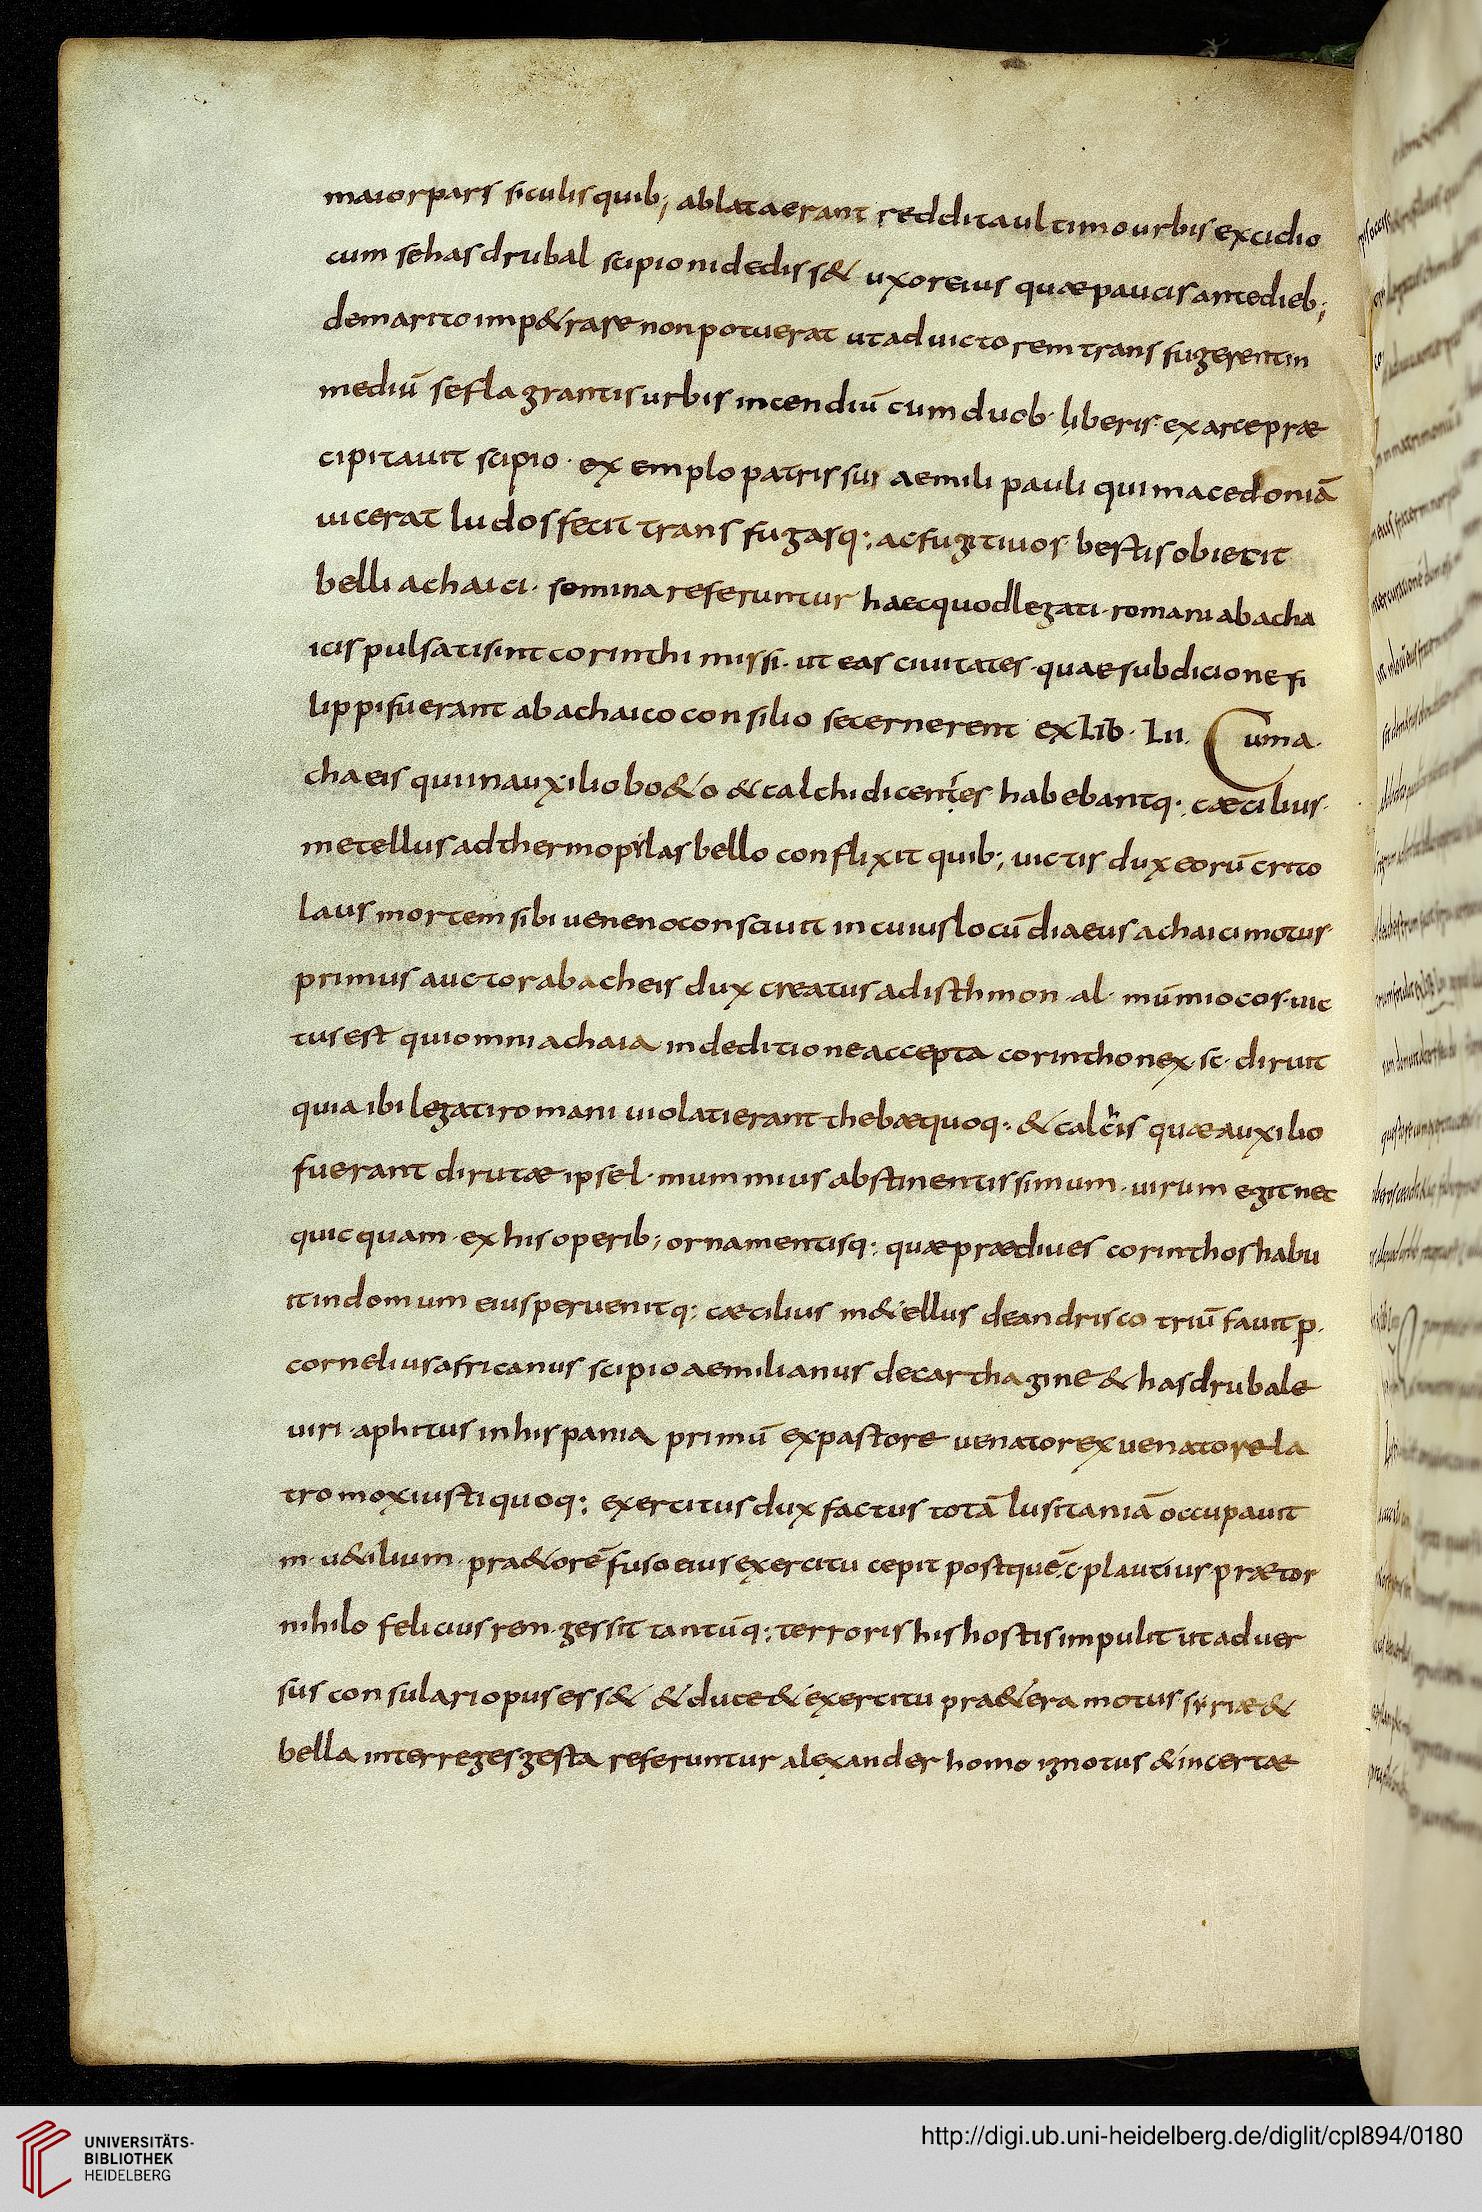 maiorpars siculisquib; ablataerant redditaultimourbis excidio
cum sehasdrubal scipionidedis s& uxoreius quæpaucisantedieb;
demaritoimp&rarenonpotuerat utaduictorem trans fugerentin
mediū seflagrantisurbis incendiū cumduob· liberis· exarceprae
cipitauit scipio· exemplopatrissui aemili pauli quimacedoniā
uicerat ludosfecit trans fugasq:, acfugitiuos bestisobiecit
belli achaici· somina referuntur haecquodlegati·romani abacha
icis pulsatisint corinthi missi· ut eas ciuitates·quaesubdicione fi
lippi fuerant abachaicoconsilio secernerent exLib· Lii. Cum a·
chaeis quiinauxilio bo&o &calchidicentes habebantq:, cæcilius·
metellus adthermopylas bello conflixit quib:, uictis dux eorū crito
laus mortem sibi ueneno consciuit incuiuslocū diaeus achaicimotus
primus auctor abacheis dux creatus adisthmon·al· múmiocos·uic
tus est quiomni achaia indeditione accepta corinthonex·sc·diruit
quia ibi legatiromani uiolatierant thebæquoq:, &calcis quæauxilio
fuerant dirutæ ipse l·mummius abstinentissimum·uirum egit nec
quicquam·exhis operib; ornamentisq:, quæprædiues corinthos habu
itindomum eius peruenitq:, cæcilius m&ellus deandrisco triūfauit p·
cornelius africanus scipioaemilianus decarthagine & hasdrubale
uiri·aphitus inhispania primū expastore uenatorexuenatorela
tromoxiustiquoq:, exercitus dux factus totā lusitaniā occupauit
m·u&ilium·pra&orē fuso eius exercitu cepit postquē·c·plautius prætor
nihilo felicius rem·gessit tantūq:, terroris hishostisimpulit utaduer
sus consulariopus ess& &duce&exercitu pra&era motus·syriæ&
bella interreges gesta referuntur alexander homo ignotus &incertæ
UNIVERSITÄTS-
BIBLIOTHEK
HEIDELBERG
http://digi.ub.uni-heidelberg.de/diglit/cpl894/0180